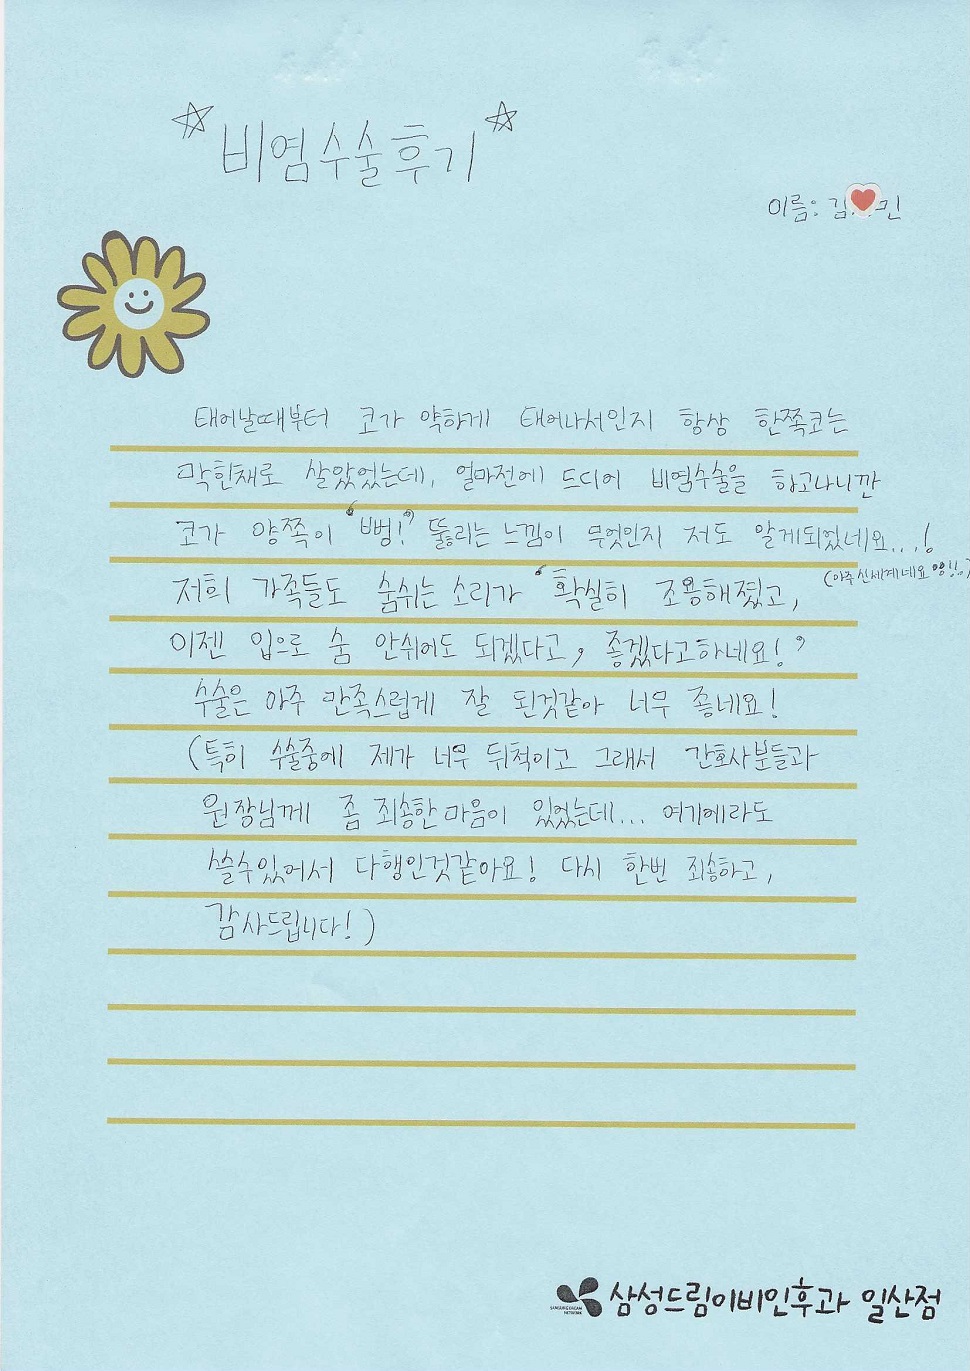 ☆비염수술후기☆
이름: 김♥민
태어날때부터 코가 약하게 태어나서인지 항상 한쪽코는
막힌채로 살았었는데, 얼마전에 드디어 비염수술을 하고나니깐
코가 양쪽이 '뻥!' 뚫리는 느낌이 무엇인지 저도 알게되었네요...!
(아주 신세계네요
저희 가족들도 숨쉬는 소리가 '확실히 조용해졌고,
이젠 입으로 숨 안쉬어도 되겠다고, 좋겠다고하네요!'
수술은 아주 만족스럽게 잘 된것같아 너무 좋네요!
(특히 수술중에 제가 너무 뒤척이고 그래서 간호사분들과
원장님께 좀 죄송한 마음이 있었는데... 여기에라도
쓸수있어서 다행인것같아요! 다시 한번 죄송하고,
감사드립니다!)
SAMSUNG DREAM
NETWORK
삼성드림이비인후과 일산점